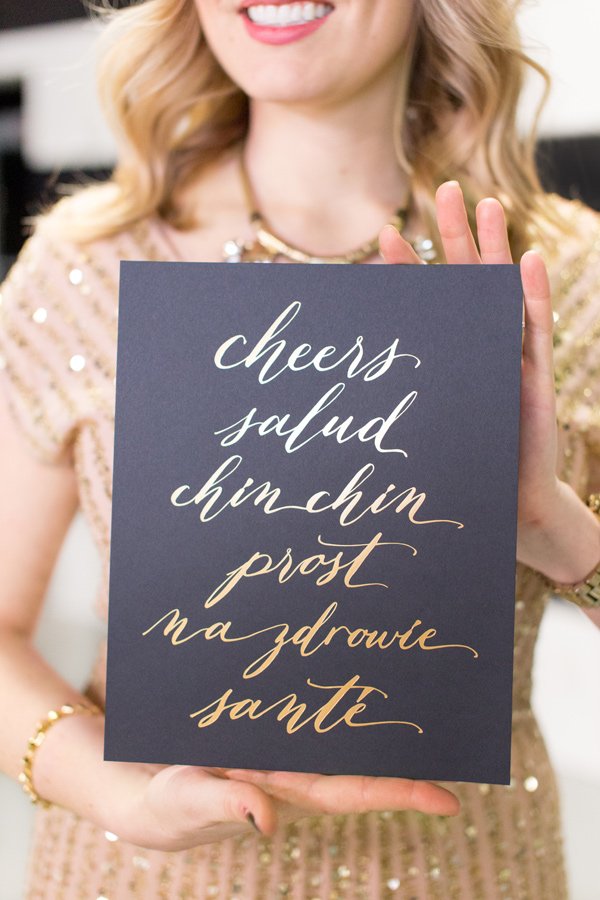 cheers
salud
chin chin
prost
na zdrowie
santé